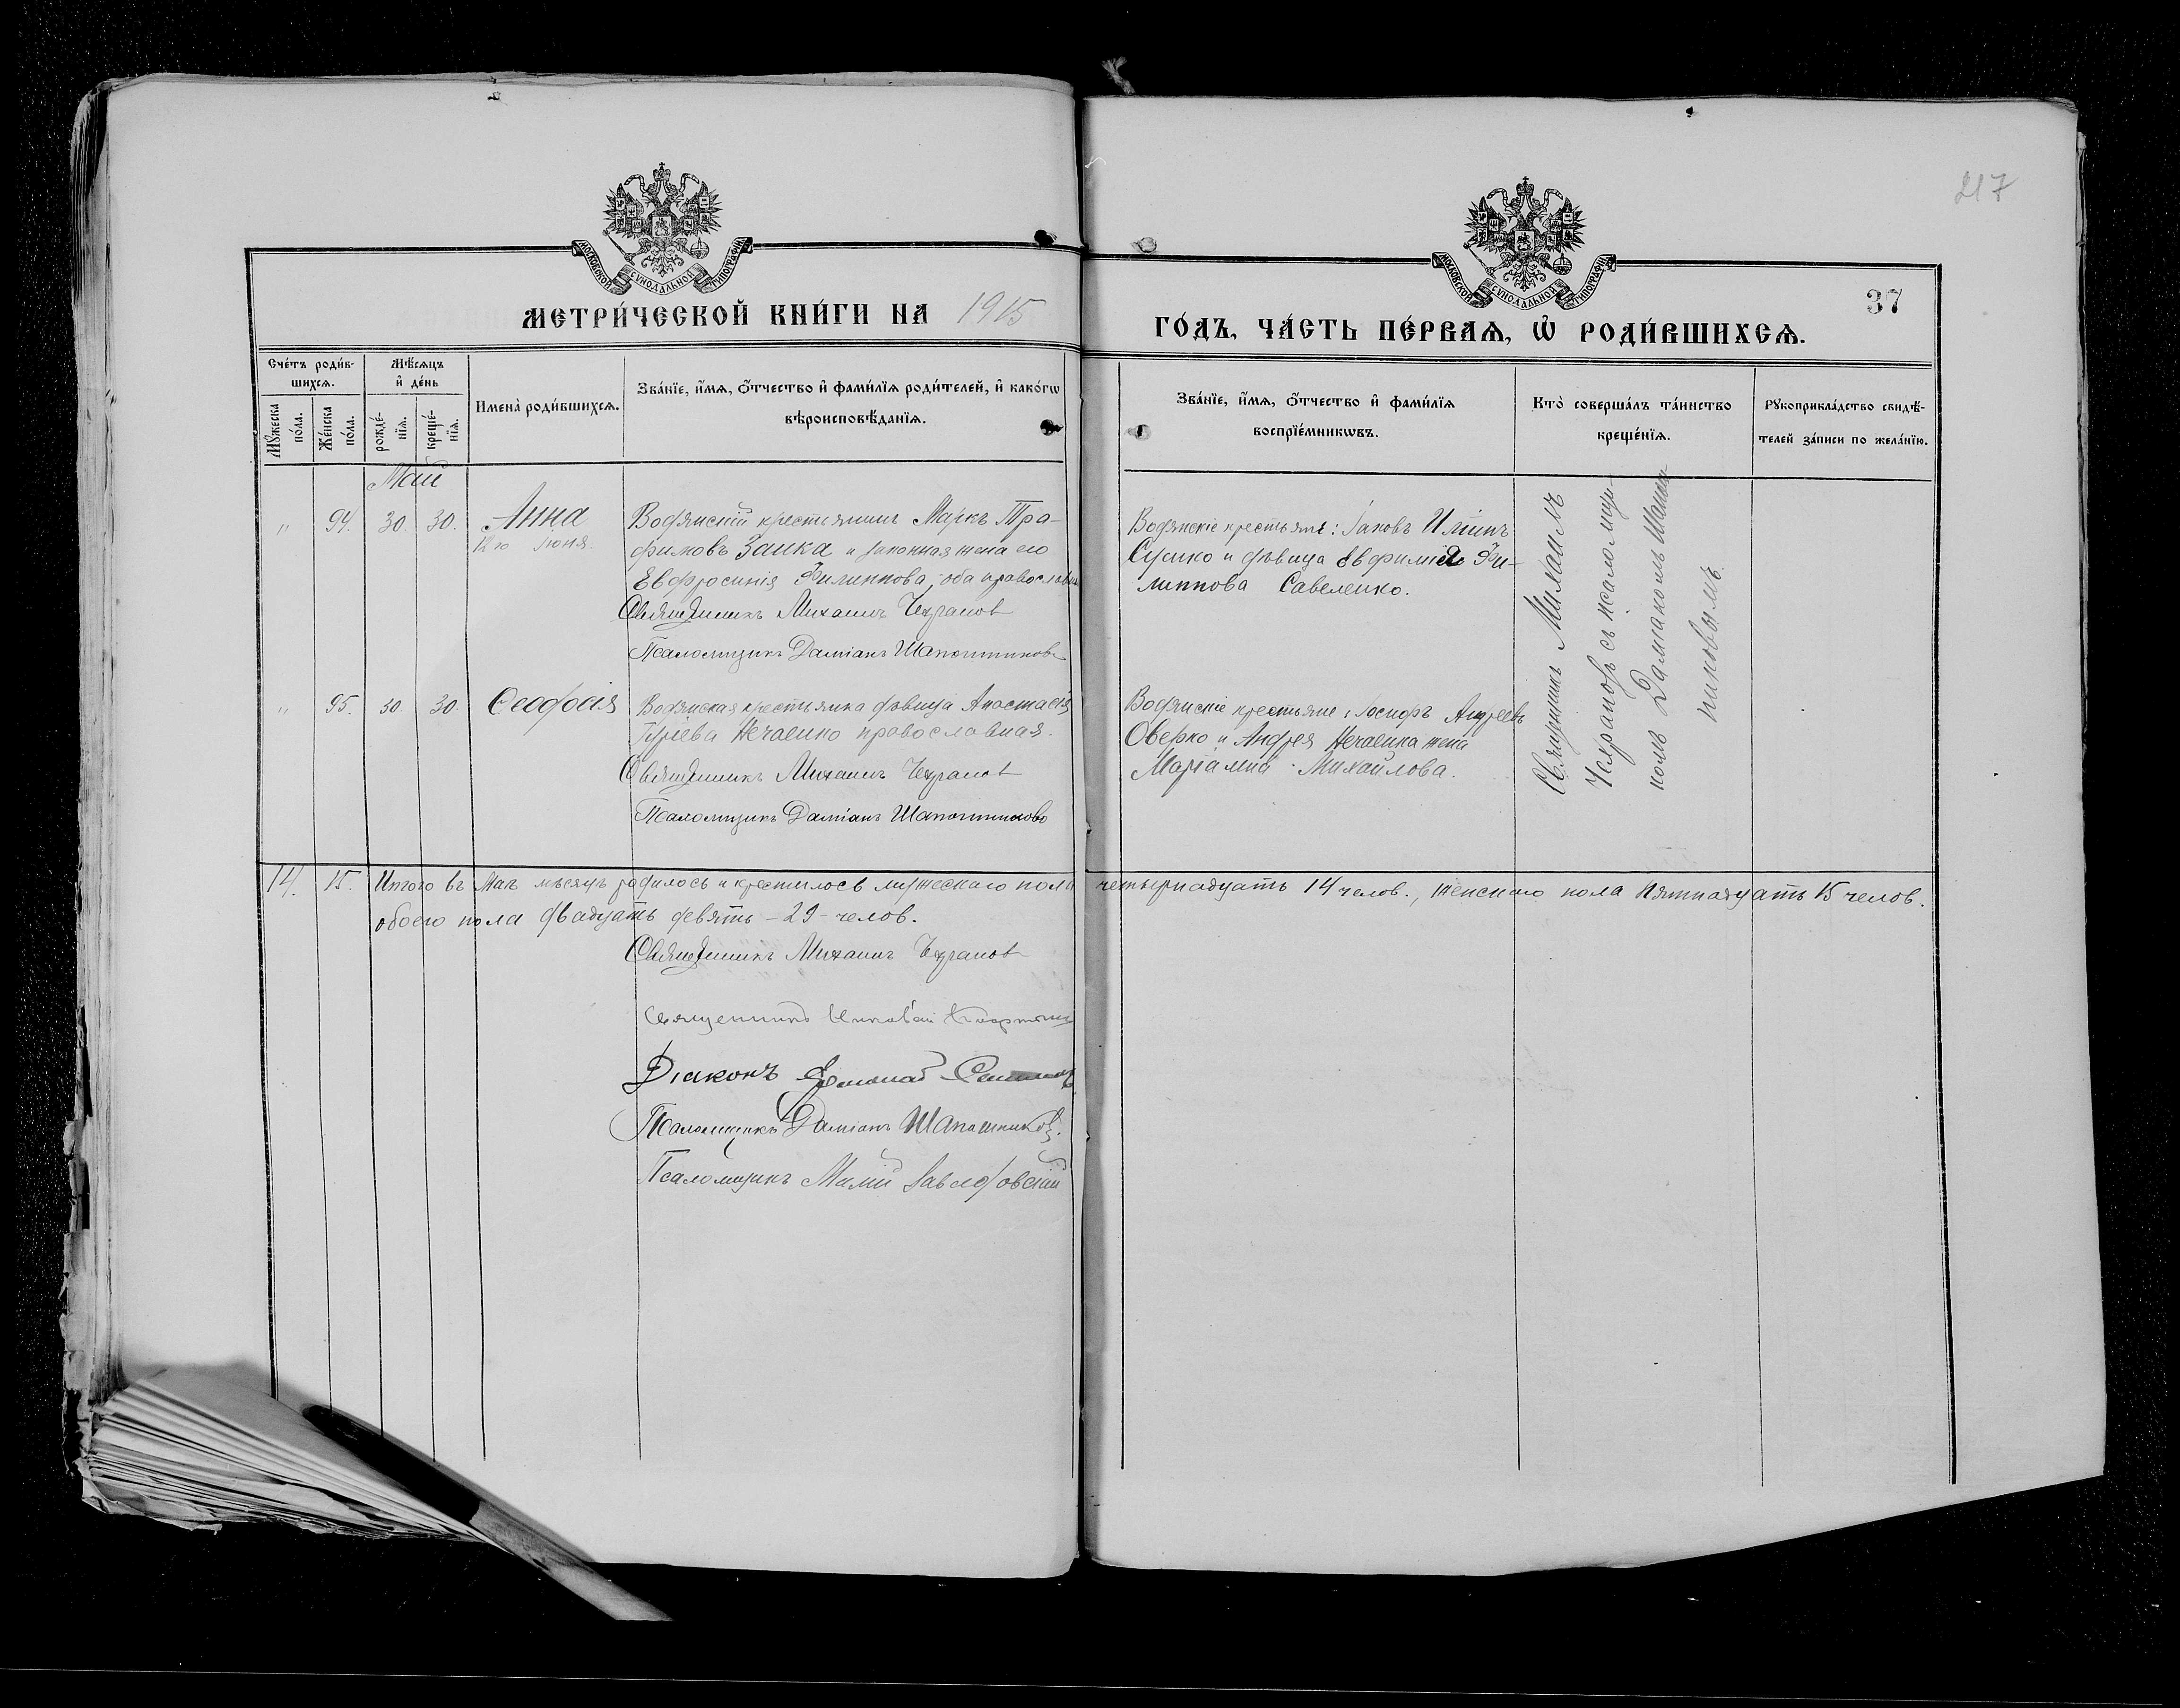 217
МОСКОВСКОЙ СУНОДАЛЬНОЙ ТИПОГРАФІИ
МЕТРИ́ЧЕСКОЙ КНИ́ГИ НА 1915
МОСКОВСКОЙ СУНОДАЛЬНОЙ ТИПОГРАФІИ
37
ГО́ДЪ, ЧА́СТЬ ПЕ́РВАѦ, Ѡ҆ РОДИ́ВШИХСѦ.
Сче́тъ роди́в-
шихсѧ.
Мѣ́сѧцъ
и҆ де́нь
Мꙋ́жеска
по́ла.
Же́нска
по́ла.
рожде́-
нїѧ.
креще́-
нїѧ.
Имена̀ роди́вшихсѧ.
Зва́нїе, и҆́мѧ, ѻ҆́тчество и҆ фами́лїѧ роди́телей, и҆ како́гѡ
вѣроисповѣ́данїѧ.
Зва́нїе, и҆́мѧ, ѻ҆́тчество и҆ фами́лїѧ
воспрїе́мникѡвъ.
Кто̀ соверша́лъ та́инство
креще́нїѧ.
Рꙋкоприкла́дство свидѣ́-
телей за́писи по жела́нїю.
Май
" 94. 30. 30. Анна
12го Іюня.
Водянскій крестьянинъ Маркъ Тро-
фимовъ Заика и законная жена его
Евфросинія Филиппова, оба православн
Священникъ Михаилъ Чехранов
Псаломщикъ Даміанъ Шапошниковъ
Водянскіе крестьяне: Іаковъ Ильинъ
и дѣвица Евфимія Фи-
липпова Савеленко.
Священникъ Михаилъ
Чехрановъ съ псаломщи-
комъ Даміаномъ Шапош-
никовымъ.
" 95. 30. 30. Феодосія
Водянская крестьянка дѣвица Анастасія
Нечаенко православная.
Священникъ Михаилъ Чехранов
Псаломщикъ Даміанъ Шапошниковъ
Водянскіе крестьяне: Іосифъ Андреевъ
Оверко и Андрея Нечаенка жена
Маріамна Михайлова.
14. 15. Итого въ Маѣ мѣсяцѣ родилось и крестилось мужескаго пола четырнадцать 14 челов., женскаго пола пятнадцать 15 челов.
обоего пола двадцать девять - 29 - челов.
Священникъ Михаилъ Чехранов
Священникъ
Діаконъ
Псаломщикъ Даміанъ Шапошниковъ.
Псаломщикъ